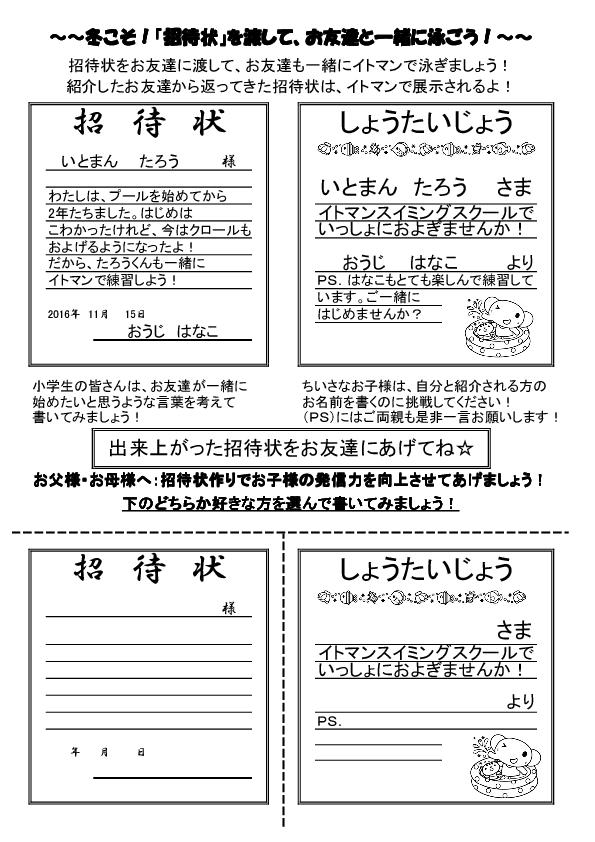 ～～冬こそ！「招待状」を渡して、お友達と一緒に泳ごう！～～
招待状をお友達に渡して、お友達も一緒にイトマンで泳ぎましょう！
紹介したお友達から返ってきた招待状は、イトマンで展示されるよ！
招　待　状
いとまん　たろう　　様
わたしは、プールを始めてから
2年たちました。はじめは
こわかったけれど、今はクロールも
およげるようになったよ！
だから、たろうくんも一緒に
イトマンで練習しよう！
2016年　11月　15日
おうじ　はなこ
しょうたいじょう
いとまん　たろう　さま
イトマンスイミングスクールで
いっしょにおよぎませんか！
おうじ　はなこ　　より
PS. はなこもとても楽しんで練習して
います。ご一緒に
はじめませんか？
小学生の皆さんは、お友達が一緒に
始めたいと思うような言葉を考えて
書いてみましょう！
ちいさなお子様は、自分と紹介される方の
お名前を書くのに挑戦してください！
（PS）にはご両親も是非一言お願いします！
出来上がった招待状をお友達にあげてね☆
お父様・お母様へ：招待状作りでお子様の発信力を向上させてあげましょう！
下のどちらか好きな方を選んで書いてみましょう！
招　待　状
様
年　月　日
しょうたいじょう
さま
イトマンスイミングスクールで
いっしょにおよぎませんか！
より
PS.